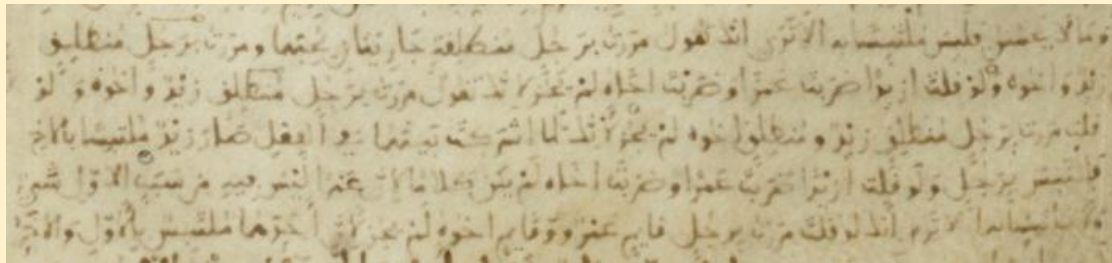 وما لا يحسن فليس ملتبسا به الا ترى انك تقول مررت برجل منطلقة جاريتان يحبهما ومررت برجل منطلق
زيد واخوه ولو قلت ازيدا ضربت عمرا وضربت اخاه لم يجز لانك تقول مررت برجل منطلق زيد واخوه ولو
قلت مررت برجل منطلق زيد ومنطلق اخوه لم يجز لانك لما اشركت بينهما في الفعل صار زيد ملتبسا بالاخ
فالتبس برجل ولو قلت ازيدا ضربت عمرا وضربت اخاه لم يكن كلاما لان عمرا ليس فيه من سبب الاول شيء
ولا ملتبسا به الا ترى انك لو قلت مررت برجل قايم عمرو وقايم اخوه لم يجز لان احدهما ملتبس بالاول والاخر